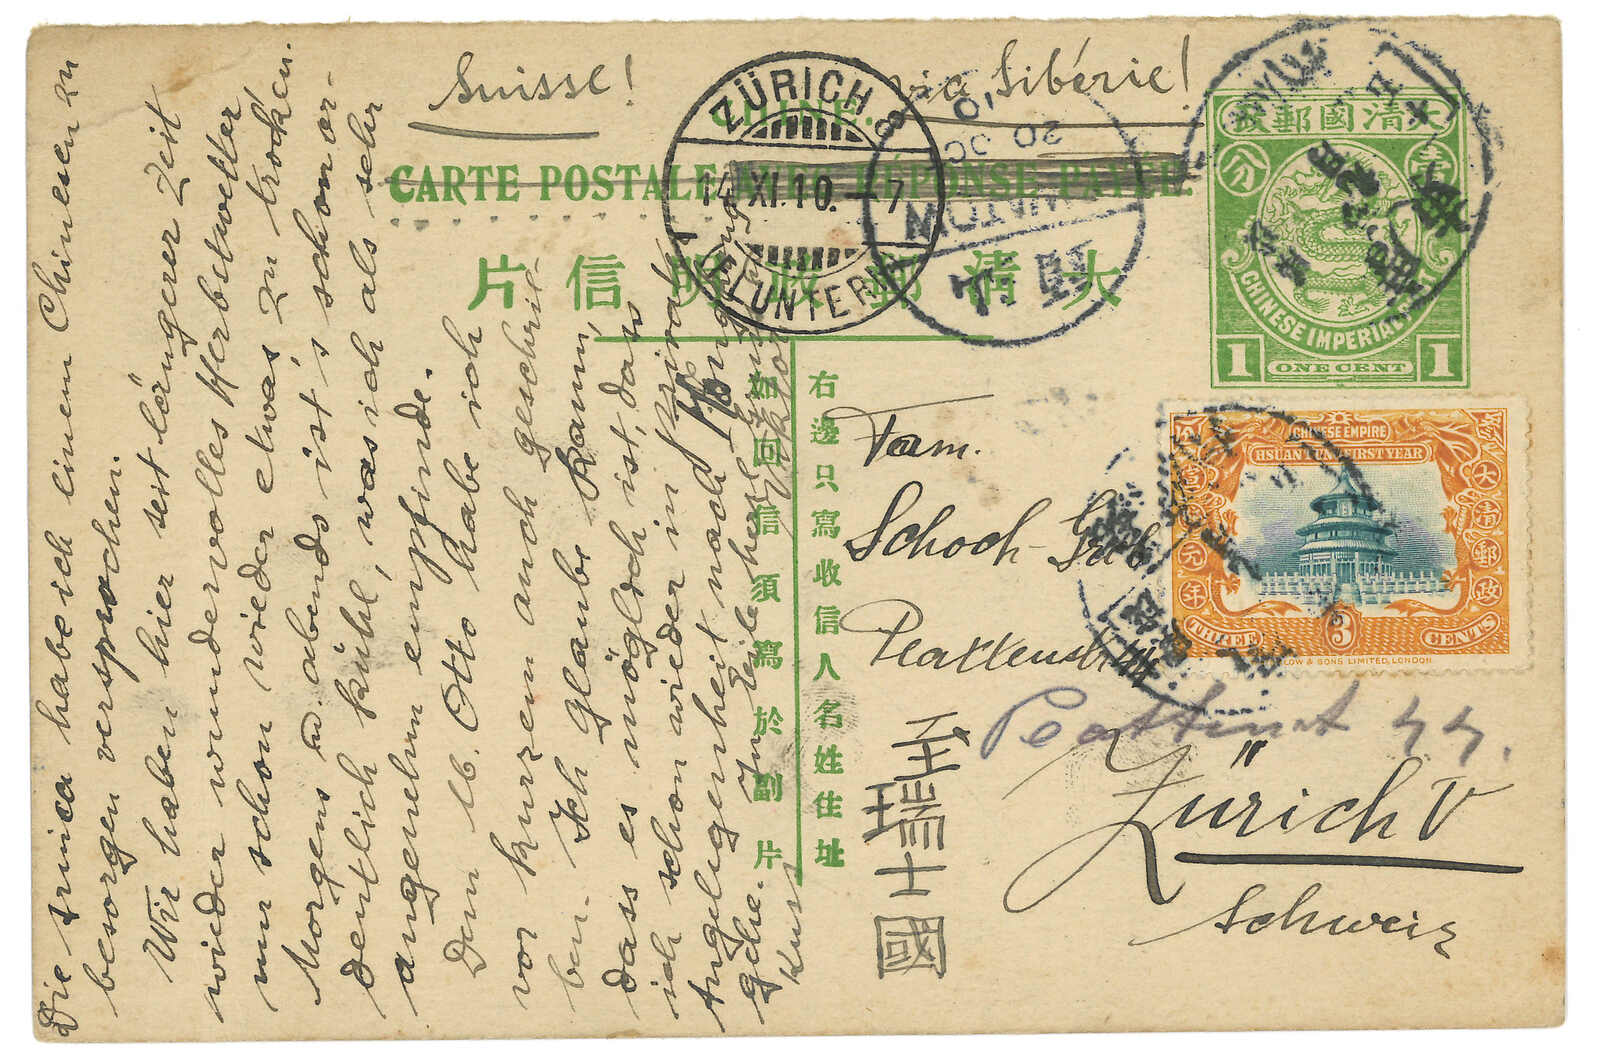 Suisse!
via Sibérie!
CHINE.
CARTE POSTALE AVEC RÉPONSE PAYÉE
大清郵政明信片
右邊只寫收信人名姓住址
如回信須寫於副片
大清國郵政
壹
分
CHINESE IMPERIAL POST
1 ONE CENT 1
CHINESE EMPIRE
HSUAN TUNG FIRST YEAR
大清郵政
宣元年
THREE 3 CENTS
LOW & SONS LIMITED, LONDON
ZÜRICH 8
14 XI. 10. - 7
(FLUNTERN)
20 OC 10
SWATOW
Fam.
Schoch-Greb
Plattenstr.
Plattenst 44.
Zürich V
Schweiz
至瑞士國
Die trinca habe ich einem Chinesen zu
besorgen versprochen.
Wir haben hier seit längerer Zeit
wieder wundervolles Herbstwetter
nur schon wieder etwas zu trocken.
Morgens u. abends ist's schon or-
dentlich kühl, was ich als sehr
angenehm empfinde.
Dem lb. Otto habe ich
vor kurzem auch geschrie-
ben. Ich glaube kaum,
dass es möglich ist, dass
ich schon wieder in Privat-
Angelegenheit nach Hong
gehe.
Kuss